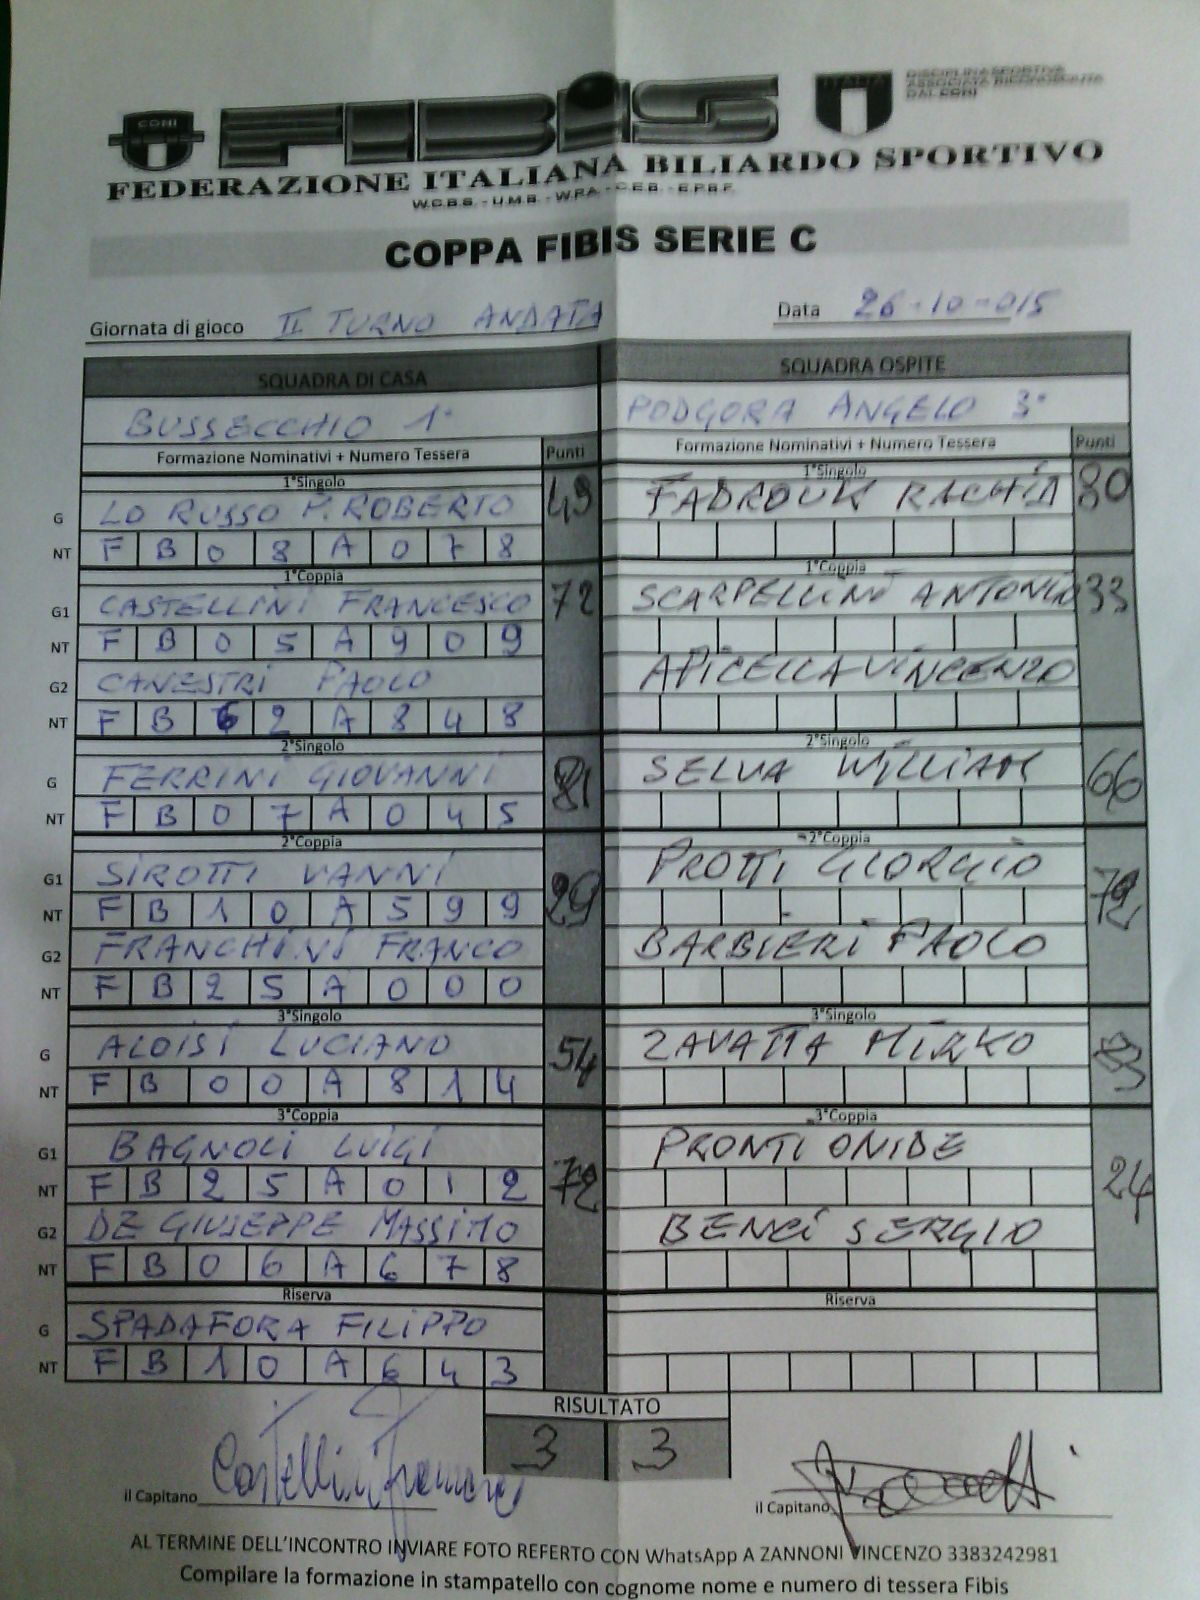 CONI FIBiS ITALIA DISCIPLINA SPORTIVA
ASSOCIATA RICONOSCIUTA
DAL CONI
FEDERAZIONE ITALIANA BILIARDO SPORTIVO
W.C.B.S. - U.M.B. - W.P.A. - C.E.B. - E.P.B.F.
COPPA FIBIS SERIE C
Giornata di gioco II TURNO ANDATA Data 26-10-015
SQUADRA DI CASA SQUADRA OSPITE
BUSSECCHIO 1° PODGORA ANGELO 3°
Formazione Nominativi + Numero Tessera Punti Formazione Nominativi + Numero Tessera Punti
1°Singolo 1°Singolo
G LO RUSSO P. ROBERTO 49 FADROUK RACHID 80
NT F B 0 8 A 0 7 8
1°Coppia 1°Coppia
G1 CASTELLINI FRANCESCO 72 SCARPELLINI ANTONIO 33
NT F B 0 5 A 9 0 9
G2 CANESTRI PAOLO APICELLA VINCENZO
NT F B 6 2 A 8 4 8
2°Singolo 2°Singolo
G FERRINI GIOVANNI 81 SELVA WILLIAM 66
NT F B 0 7 A 0 4 5
2°Coppia 2°Coppia
G1 SIROTTI VANNI 29 PROTTI GIORGIO 72
NT F B 1 0 A 5 9 9
G2 FRANCHINI FRANCO BARBIERI PAOLO
NT F B 2 5 A 0 0 0
3°Singolo 3°Singolo
G ALOISI LUCIANO 54 ZAVATTA MIRKO
NT F B 0 0 A 8 1 4
3°Coppia 3°Coppia
G1 BAGNOLI LUIGI 72 PRONTI ONIDE 24
NT F B 2 5 A 0 1 2
G2 DE GIUSEPPE MASSIMO BENCI SERGIO
NT F B 0 6 A 6 7 8
Riserva Riserva
G SPADAFORA FILIPPO
NT F B 1 0 A 6 4 3
RISULTATO
3 3
il Capitano Castellini Francesco il Capitano
AL TERMINE DELL'INCONTRO INVIARE FOTO REFERTO CON WhatsApp A ZANNONI VINCENZO 3383242981
Compilare la formazione in stampatello con cognome nome e numero di tessera Fibis